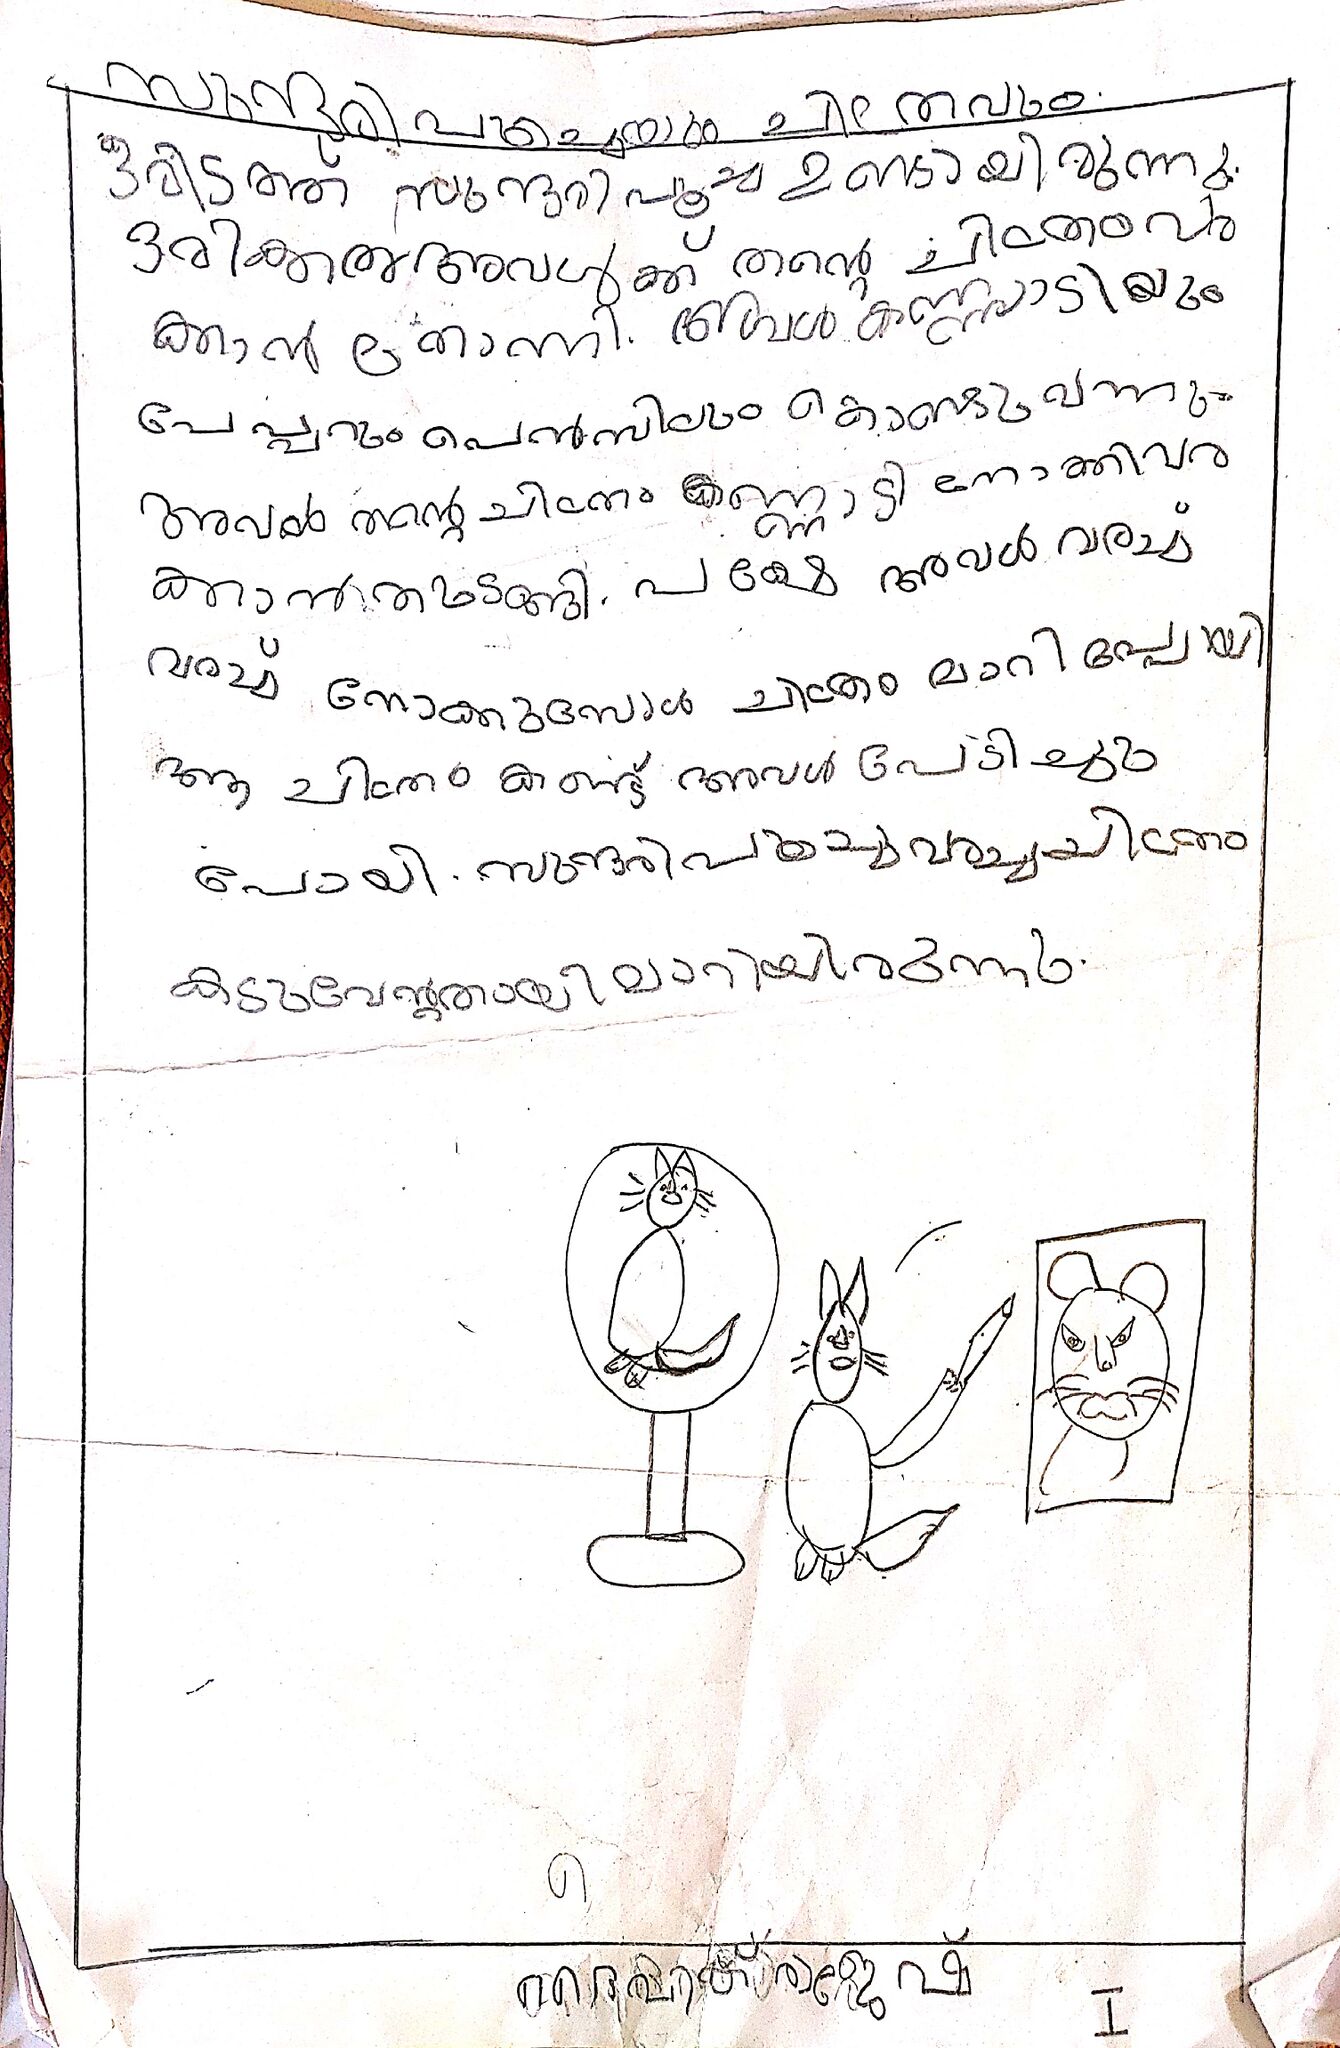 സുന്ദരി പൂച്ചയും ചിത്രവും.
ഒരിടത്ത് സുന്ദരിപൂച്ച ഉണ്ടായിരുന്നു.
ഒരിക്കൽ അവൾക്ക് തന്റെ ചിത്രം വര
ക്കാൻ തോന്നി. അവൾ കണ്ണാടിയും
പേപ്പറും പെൻസിലും കൊണ്ടുവന്നു.
അവൾ തന്റെ ചിത്രം കണ്ണാടി നോക്കി വര
ക്കാൻ തുടങ്ങി. പക്ഷേ അവൾ വരച്ച്
വരച്ച് നോക്കുമ്പോൾ ചിത്രം മാറി പ്പോയി
ആ ചിത്രം കണ്ട് അവൾ പേടിച്ചു
പോയി. സുന്ദരി പൂച്ച വരച്ച ചിത്രം
കടുവേന്റതായി മാറിയിരുന്നു.
I